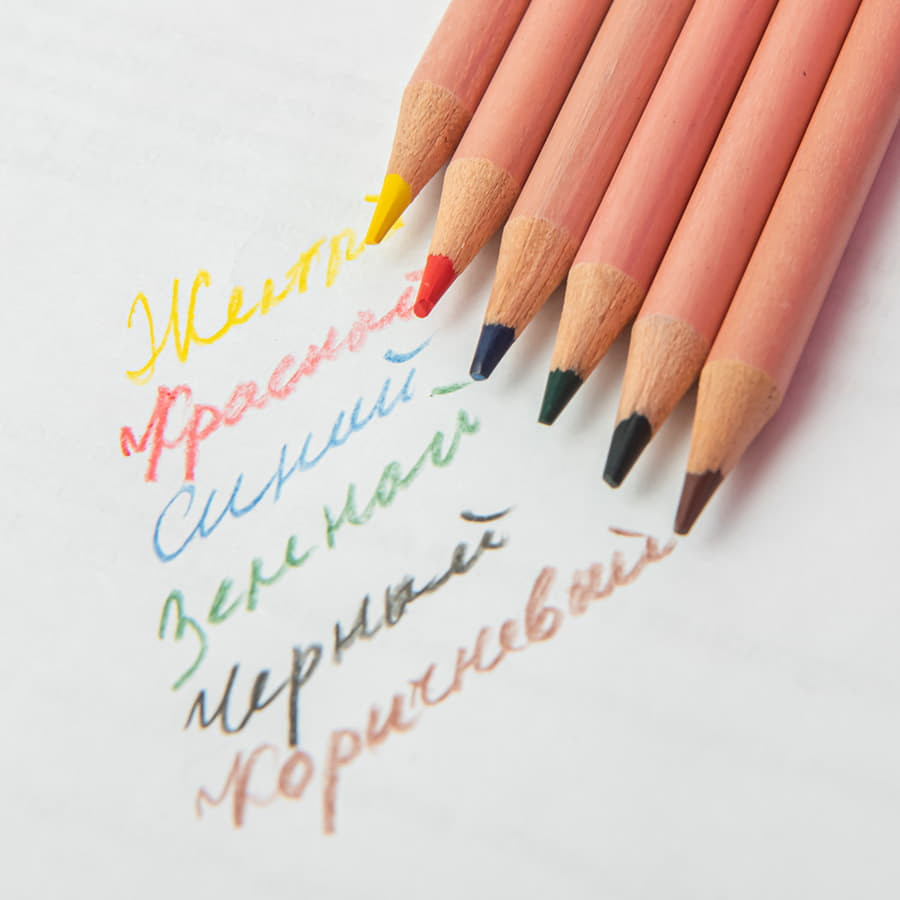 Красный
Синий
Зеленый
Черный
Коричневый